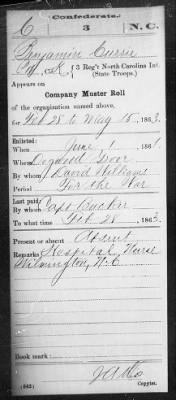 Confederate.
C 3 N.C.
Benjamin Currie
Co. K, 3 Reg't North Carolina Inf.
(State Troops.)
Appears on
Company Muster Roll
of the organization named above,
for Feb 28 to May 15, 1863.
Enlisted:
When June 1, 1861.
Where
By whom David Williams
Period For the War
Last paid:
By whom Capt.
To what time Feb 28, 1863.
Present or absent Absent
Remarks: Hospital Nurse
Wilmington, N.C.
Book mark:
(642)
Copyist.